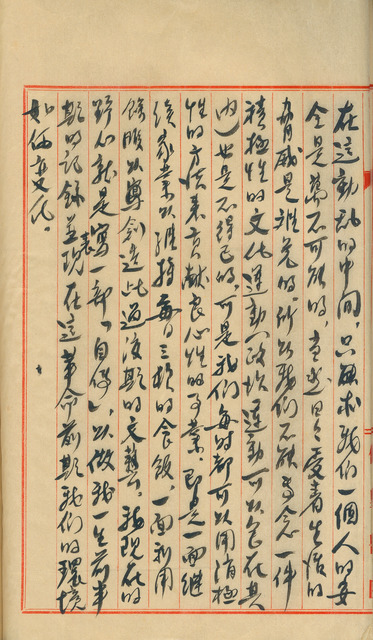 在這動亂的中間，只圖求我們一個人的安
全是萬不可能的，當然日々受着生活的
脅威是难免的，所以我們不能专念一件
積極性的文化運動（政坟運動可以包在其
内）也是不得已的，可是我們每时都可以用消極
性的方法来貢献良心性的事業。即是一面继
续家業以維持每日三頓的食飯，一面利用
餘暇以專創造此過渡期的文藝。我現在的
野心就是寫一部「自傳」，以做我一生前半
期的記録並表現在這革命前期我們的環境
如何变化。